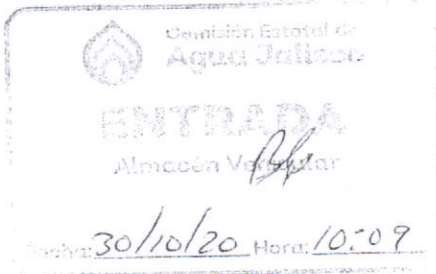 Comisión Estatal de
Agua Jalisco
ENTRADA
Almacén Vehicular
Fecha: 30/10/20 Hora: 10:09